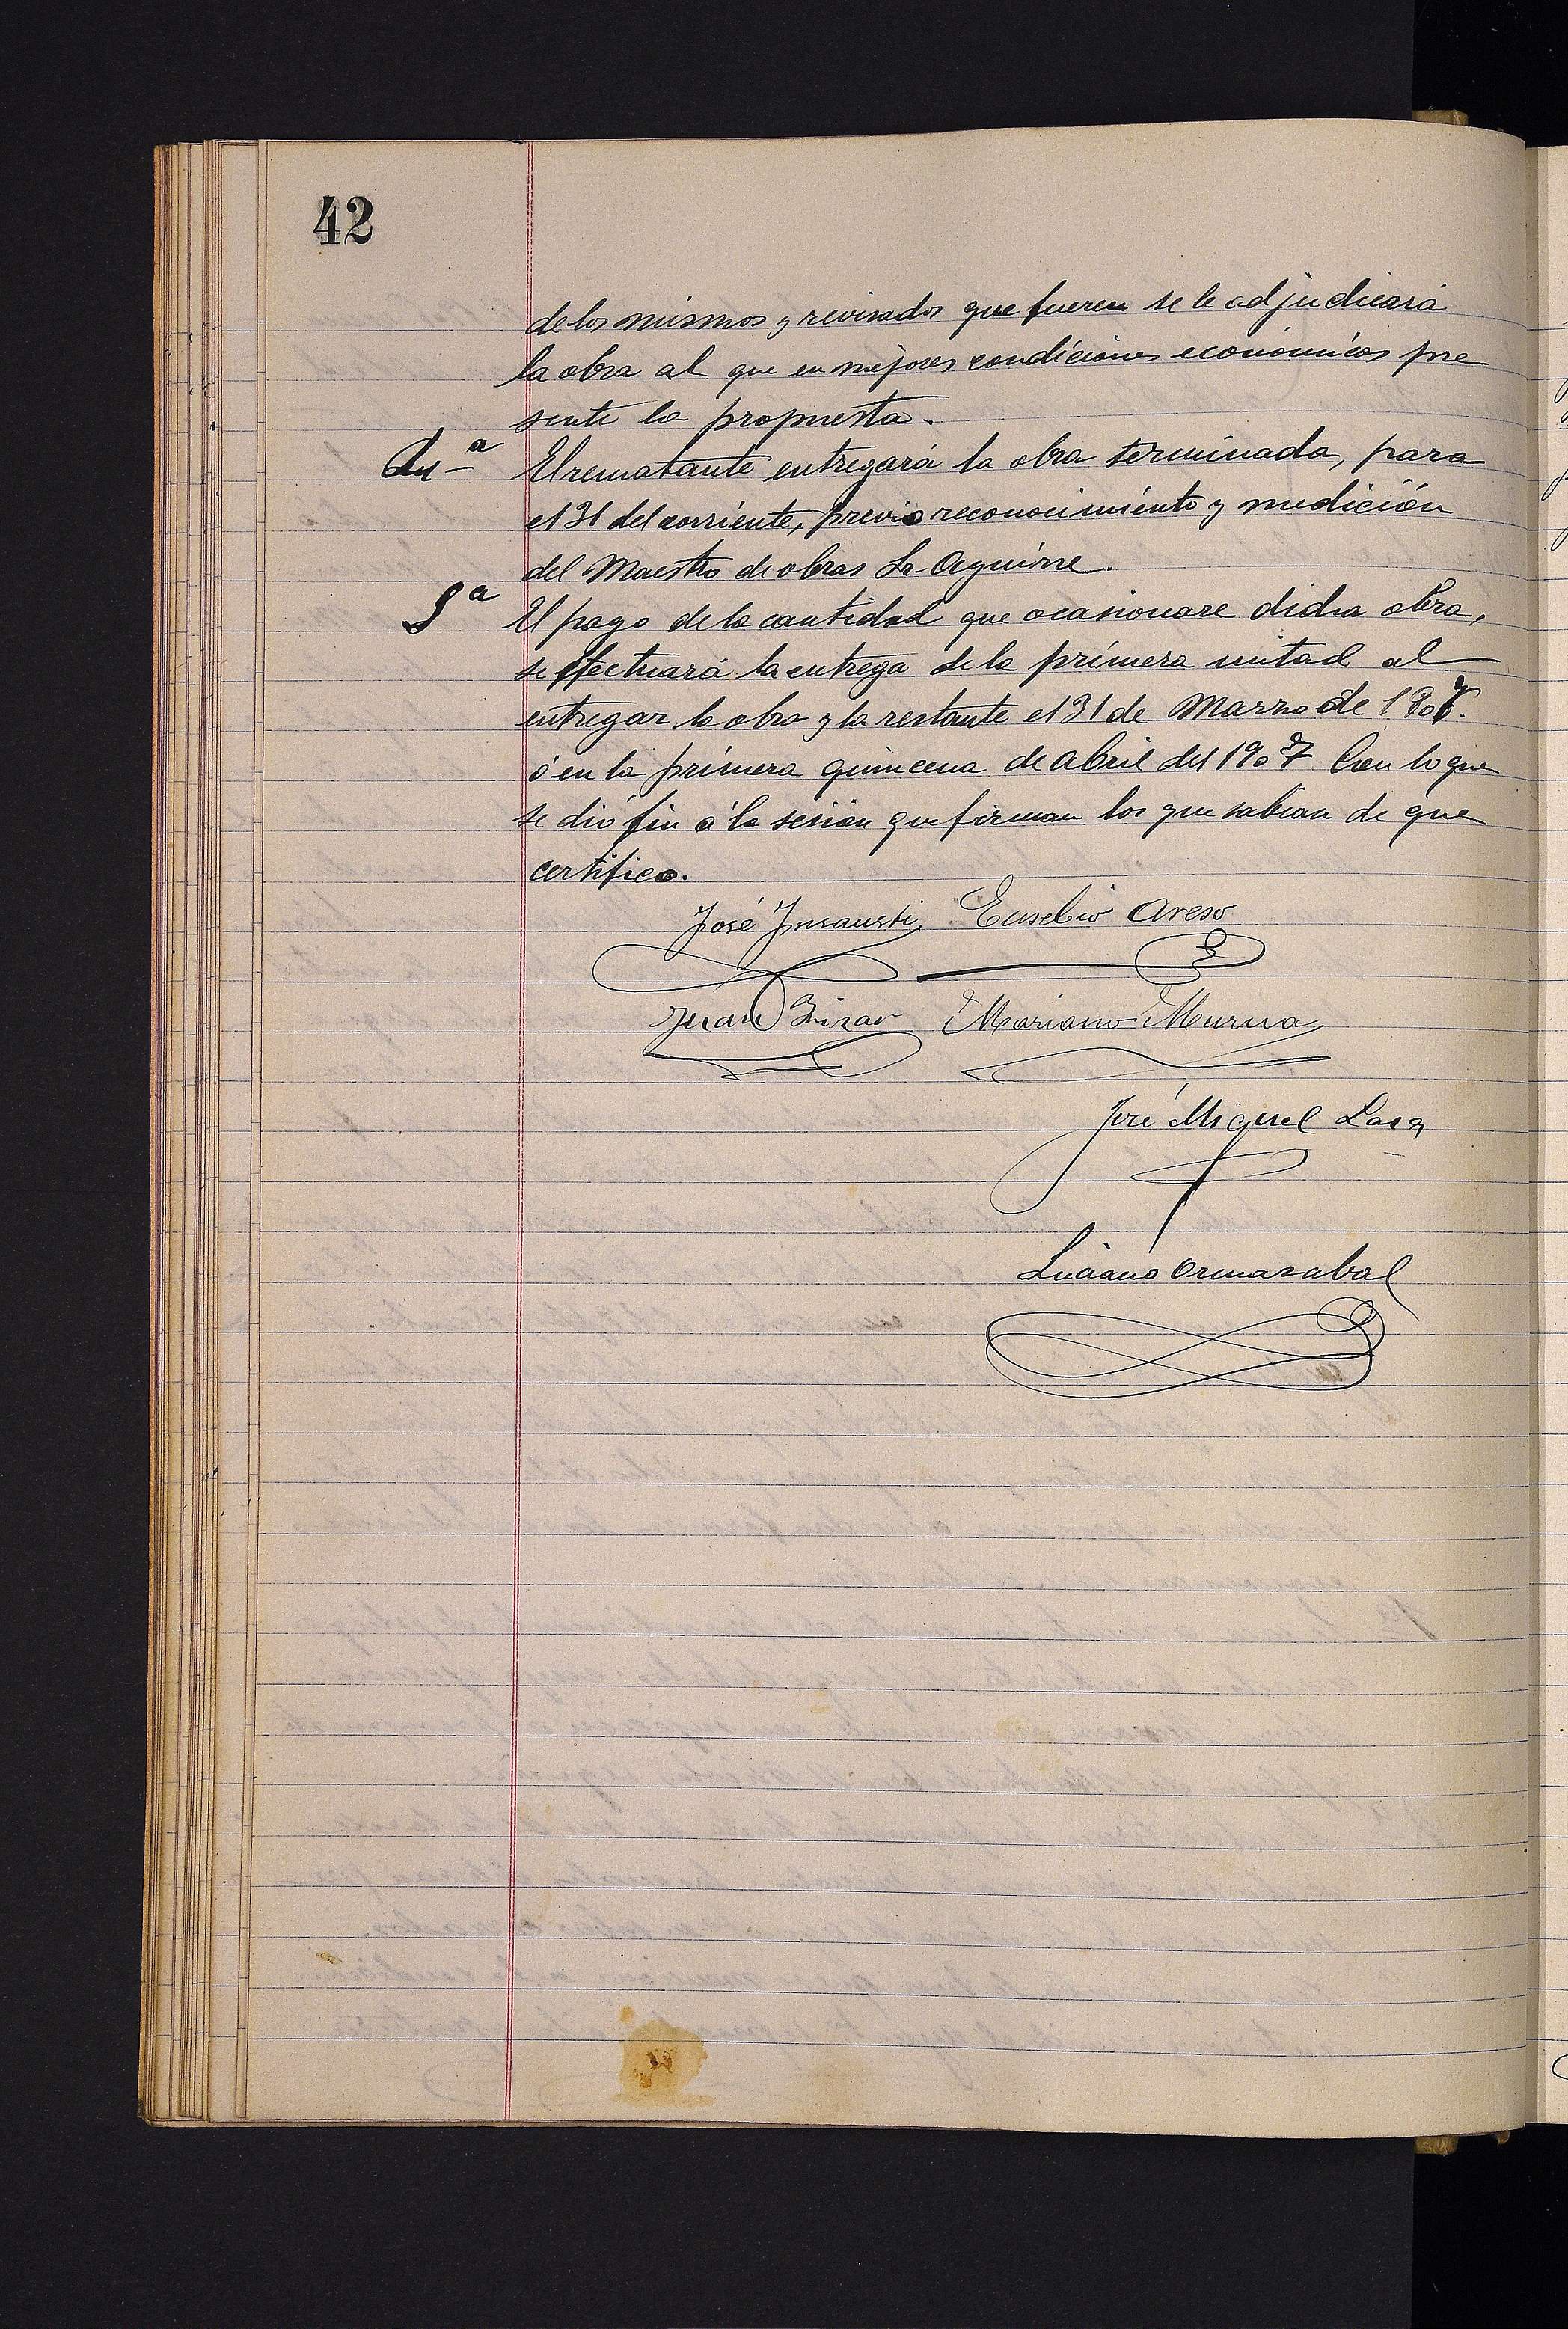 42
de los mismos y revisados que fueren se le adjudicará
la obra al que en mejores condiciones económicas pre
sente la propuesta.
El rematante entregará la obra terminada, para
el 31 del corriente, previo reconocimiento y medición
del Maestro de obras Sr. Aguirre.
5ª El pago de la cantidad que ocasionare dicha obra,
se efectuará la entrega de la primera mitad al
entregar la obra y la restante el 31 de Marzo de 1907.
ó en la primera quincena de Abril del 1907 Con lo que
se dió fin á la sesión que firman los que sabian de que
certifico.
José Insausti Eusebio Areso
Juan Irizar Mariano Murua
José Miguel Lasa
Luciano Ormazabal